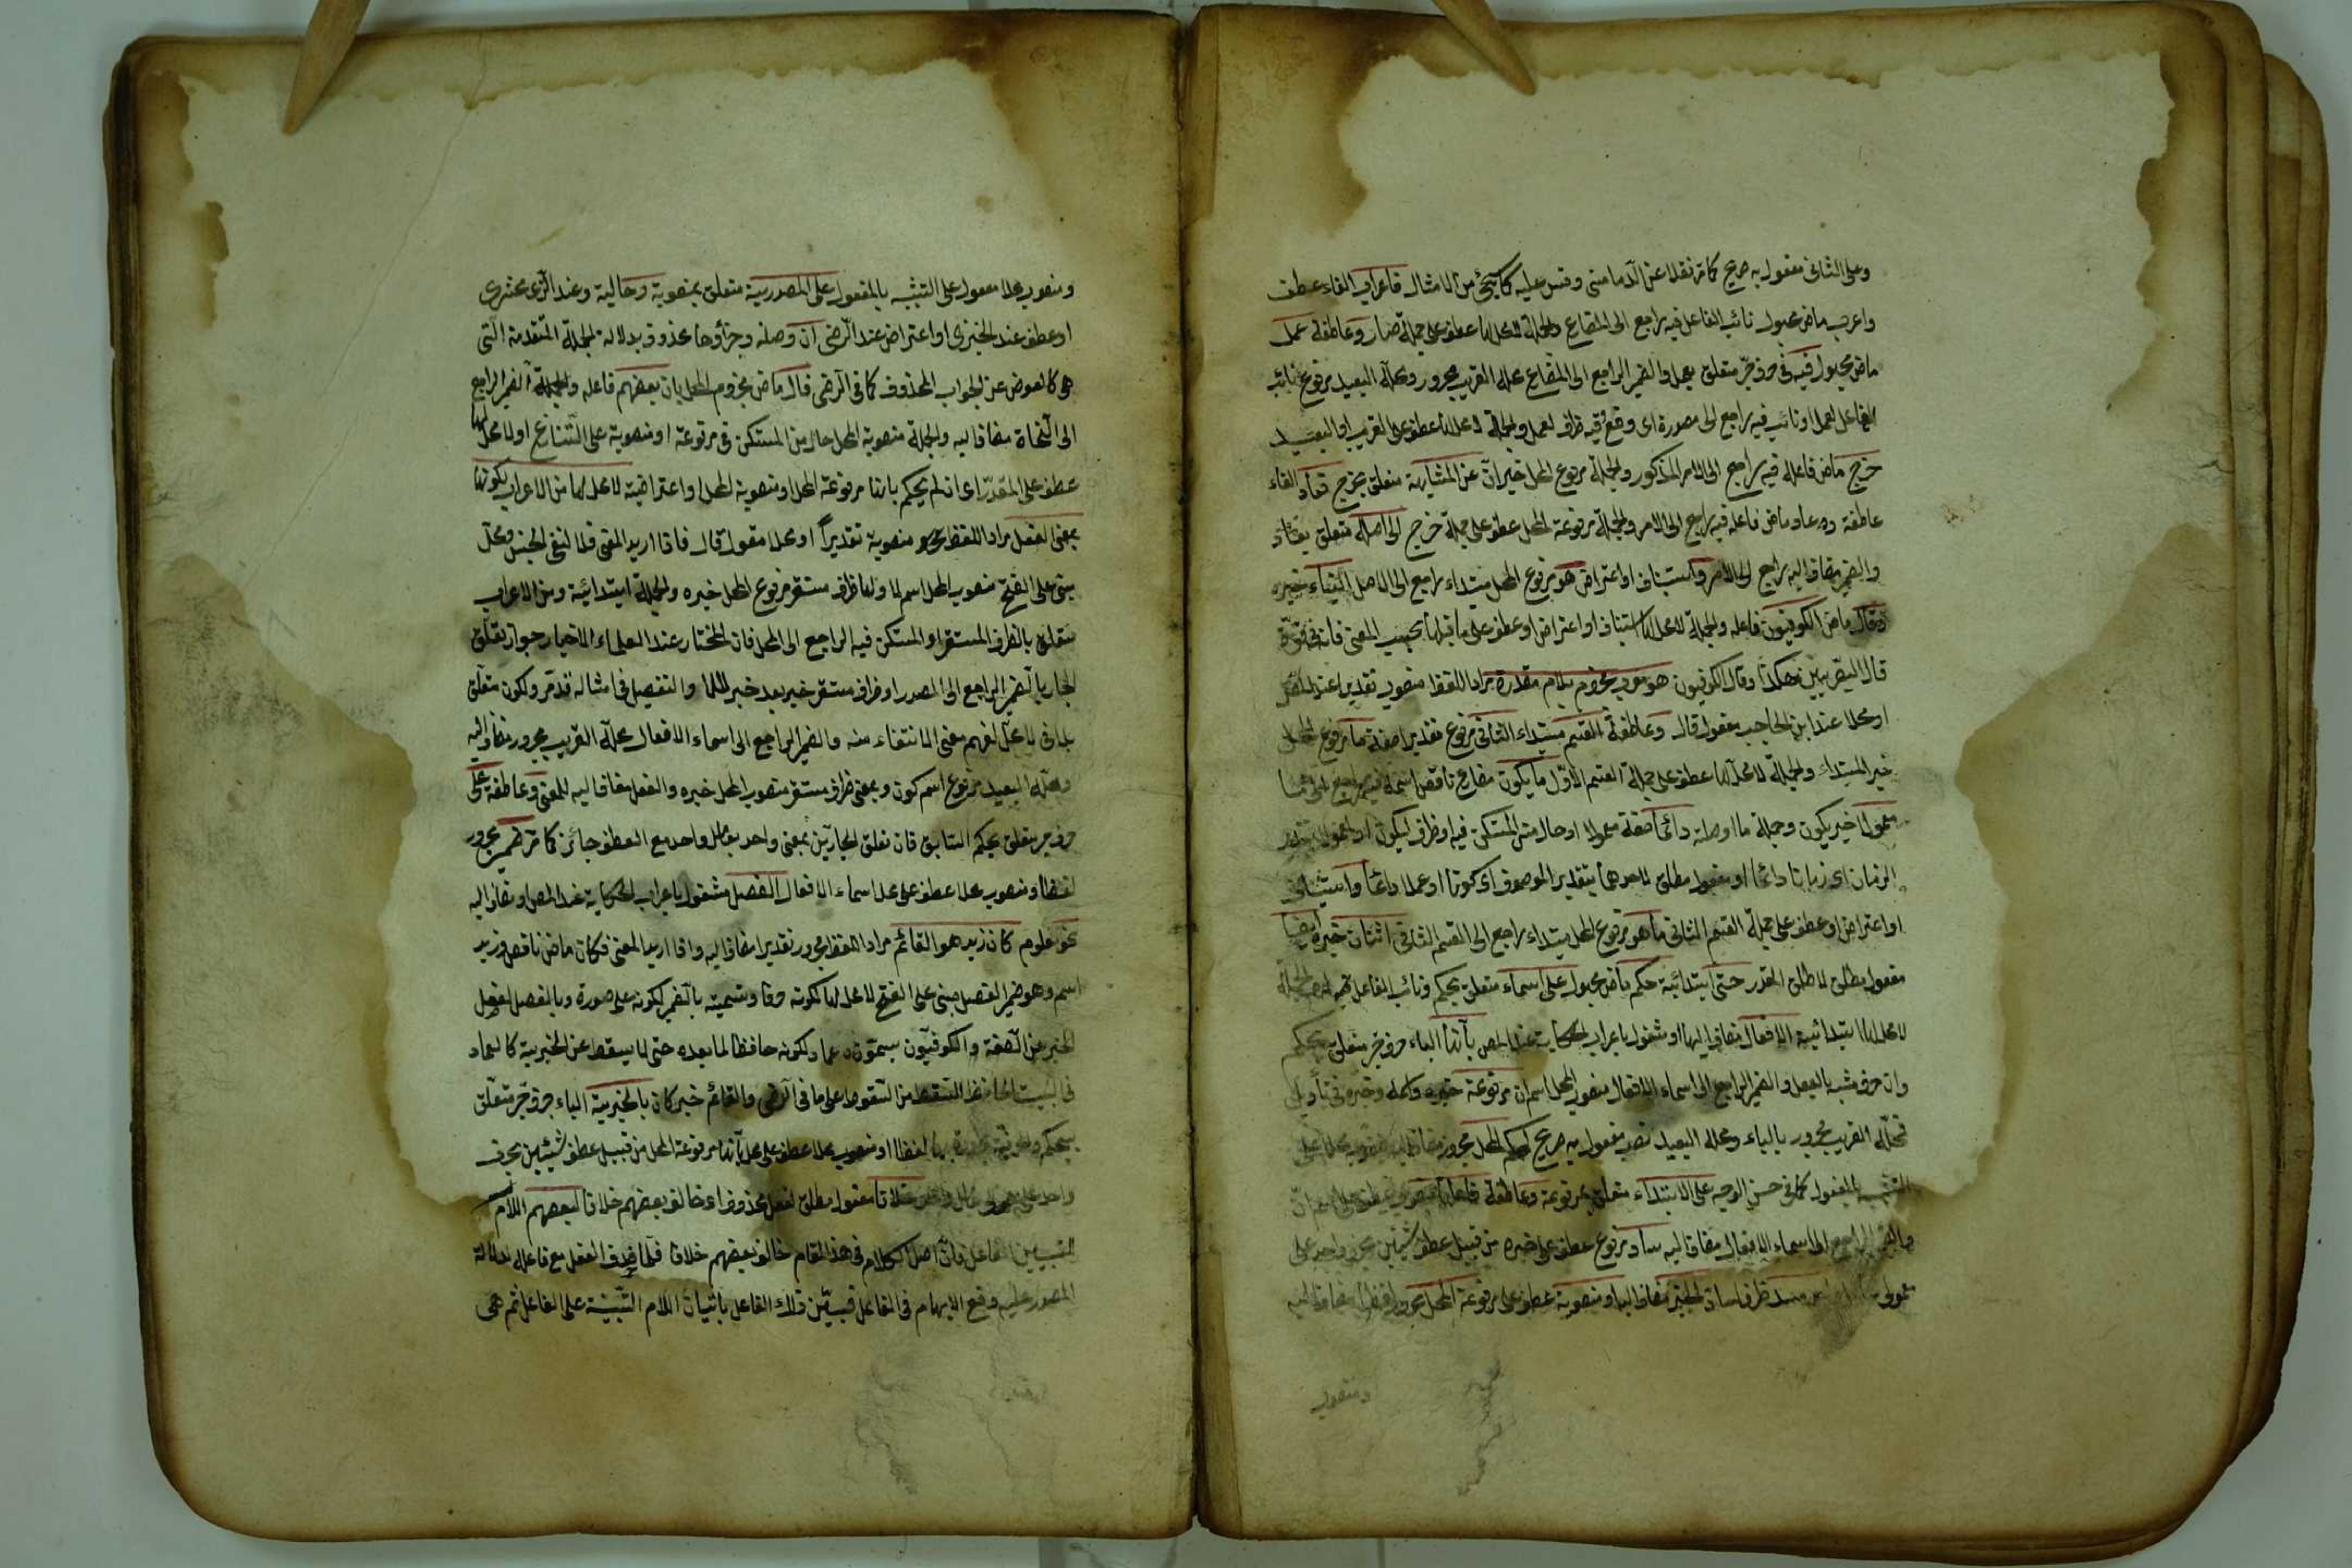 وعلى الثانى مفعول به صريح كما مر نقلا عن الدمامينى وقس عليه كما سيجئ من الامثال فاعراب الفاء عطف
واعرب ماض مجهول نائب الفاعل فيه راجع الى المضارع والجملة لا محل لها عطف على جملة صار وعاطفة عمل
ماض مجهول فيه فى حرف جر متعلق بعمل والضمير الراجع الى المضارع محله القريب مجرور ومحله البعيد مرفوع نائب
الفاعل لعمل او نائبه فيه راجع الى مصدره اى وقع وفيه ظرف لعمل والجملة لا محل لها عطف على القريب او البعيد
خرج ماض فاعله فيه راجع الى الامر المذكور والجملة مرفوع المحل خبر ان عن المشابهة متعلق بخرج فعاد الفاء
عاطفة وعاد ماض فاعله فيه راجع الى الامر والجملة مرفوعة المحل عطف على جملة خرج الى اصله متعلق بعاد
والضمير مضاف اليه راجع الى الامر واستيناف او اعتراض هو مرفوع المحل مبتداء راجع الى الاصل البناء خبره
وقال ماض الكوفيون فاعله والجملة لا محل لها استيناف او اعتراض او عطف على ما قبلها بحسب المعنى فانه فى قوة
قال البصريين هكذا وقال الكوفيون هو معرب مجزوم بلام مقدرة مراد اللفظ منصوب تقديرا عند المص
او محلا عند ابن الحاجب مقول قال وعاطفة القسم مبتداء الثانى مرفوع تقديرا صفة ما مرفوع المحل
خبر المبتداء والجملة لا محل لها عطف على جملة القسم الاول ما يكون مضارع ناقص اسمه فيه راجع الى ما
معمولا خبر يكون وجملة ما او صلة دائما صفة معمولا او حال من المستكن فيه او ظرف ليكون او لمعمولا بتقدير
الزمان اى زمانا دائما او مفعول مطلق لاحدهما بتقدير الموصوف اى كونا او عملا دائما واستيناف
او اعتراض او عطف على جملة القسم الثانى ما هو مرفوع المحل مبتداء راجع الى القسم الثانى اثنان خبره ايضا
مفعول مطلق لاطلق المقدر حتى ابتدائية حكم ماض مجهول على اسماء متعلق بحكم ونائب الفاعل الجملة
لا محل لها ابتدائية الافعال مضاف اليها او مشغول باعراب الحكاية عند المص بانها الباء حرف جر متعلق بحكم
وان حرف مشبه بالفعل والضمير الراجع الى اسماء الافعال منصوب المحل اسم ان مرفوعة خبره واسمه وخبره فى تأويل
فمحله القريب مجرور بالباء ومحله البعيد نصب مفعول به صريح لحكم المحل مجرور
التشبيه بالمفعول كما فى حسن الوجه على الابتداء متعلق بمرفوعة وعاطفة
والضمير الراجع الى اسماء الافعال مضاف اليه ساد مرفوع عطف على خبره من قبيل عطف شيئين بحرف واحد على
معمولى مسد ظرف لساد الخبر مضاف اليها او منصوبة عطف على مرفوعة المحل مجرور لفظا مضاف اليه
ومنصوب
ومنصوب محلا معمول على التشبيه بالمفعول على المصدرية متعلق بمنصوبة وحالية وعند الزمخشرى
او عطف عند الجنزى او اعتراض عند الرضى ان وصلية وجزاؤها محذوف بدلالة الجملة المتقدمة التى
هى كالعوض عن الجواب المحذوف كما فى الرضى قال ماض مجزوم المحل بان بعضهم فاعله والجملة الضمير الراجع
الى النحاة مضاف اليه والجملة منصوبة المحل حال من المستكن فى مرفوعة او منصوبة على التنازع اولا محل لها
عطف على المقدر اى ان لم يحكم بانها مرفوعة المحل او منصوبة المحل او اعتراضية لا محل لها من الاعراب لكونها
بمعنى الفعل مراد اللفظ منصوبة تقديرا او محلا مقول قال فاذا اريد المعنى فلا لنفى الجنس ومحل
مبنى على الفتح منصوب المحل اسم لا ولها ظرف مستقر مرفوع المحل خبره والجملة ابتدائية ومن الاعراب
متعلق بالظرف المستقر او المستكن فيه الراجع الى المحل فان المختار عند العلماء الاخيار جواز تعلق
الجار بالضمير الراجع الى المصدر او ظرف مستقر خبر بعد خبر للا والتفصيل فى امثاله قد مر ولكون متعلق
بلا فى لا محل لفهم معنى الانتفاء منه والضمير الراجع الى اسماء الافعال محله القريب مجرور مضاف اليه
ومحله البعيد مرفوع اسم كون وبمعنى ظرف مستقر منصوب المحل خبره والفعل مضاف اليه للمعنى وعاطفة على
حرف جر متعلق بحكم السابق فان تعلق الجارين بمعنى واحد بعامل واحد مع العطف جائز كما مر ضمير مجرور
لفظا ومنصوب محلا عطف على محل اسماء الافعال الفصل مشغول باعراب الحكاية عند المص او مضاف اليه
نحو معلوم كان زيد هو القائم مراد اللفظ مجرور تقديرا مضاف اليه واذا اريد المعنى فكان ماض ناقص وزيد
اسم وهو ضمير الفصل مبنى على الفتح لا محل لها لكونه حرفا وتسميته بالضمير لكونه على صورة وبالفصل لفصل
الخبر عن الصفة والكوفيون يسمونه عماد لكونه حافظا لما بعده حتى لا يسقط عن الخبرية كالعماد
فى البيت الحافظ السقف من السقوط على ما فى الرضى والقائم خبر كان بالخبرية الباء حرف جر متعلق
بحكم لفظا او منصوب محلا عطف على محل بانها مرفوعة المحل من قبيل عطف شيئين بحرف
واحد على خلافا مفعول مطلق لفعل محذوف اى خالف بعضهم خلافا لبعضهم اللام
لتبيين الفاعل فان اصل الكلام فى هذا المقام خالف بعضهم خلافا فلما حذف الفعل مع فاعله لدلالة
المصدر عليه وقع الابهام فى الفاعل فبين ذلك الفاعل باتيان اللام المبينة على الفاعل ثم هى